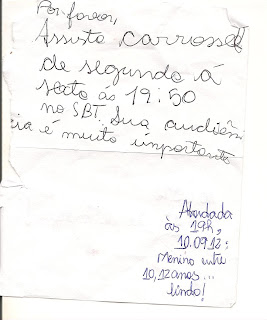 Por favor,
Assista carrossel
de segunda á
sexta ás 19:50
no SBT. Sua audiên
cia é muito importante
Abordada
às 19h,
10.09.12:
Menino entre
10,12 anos...
lindo!